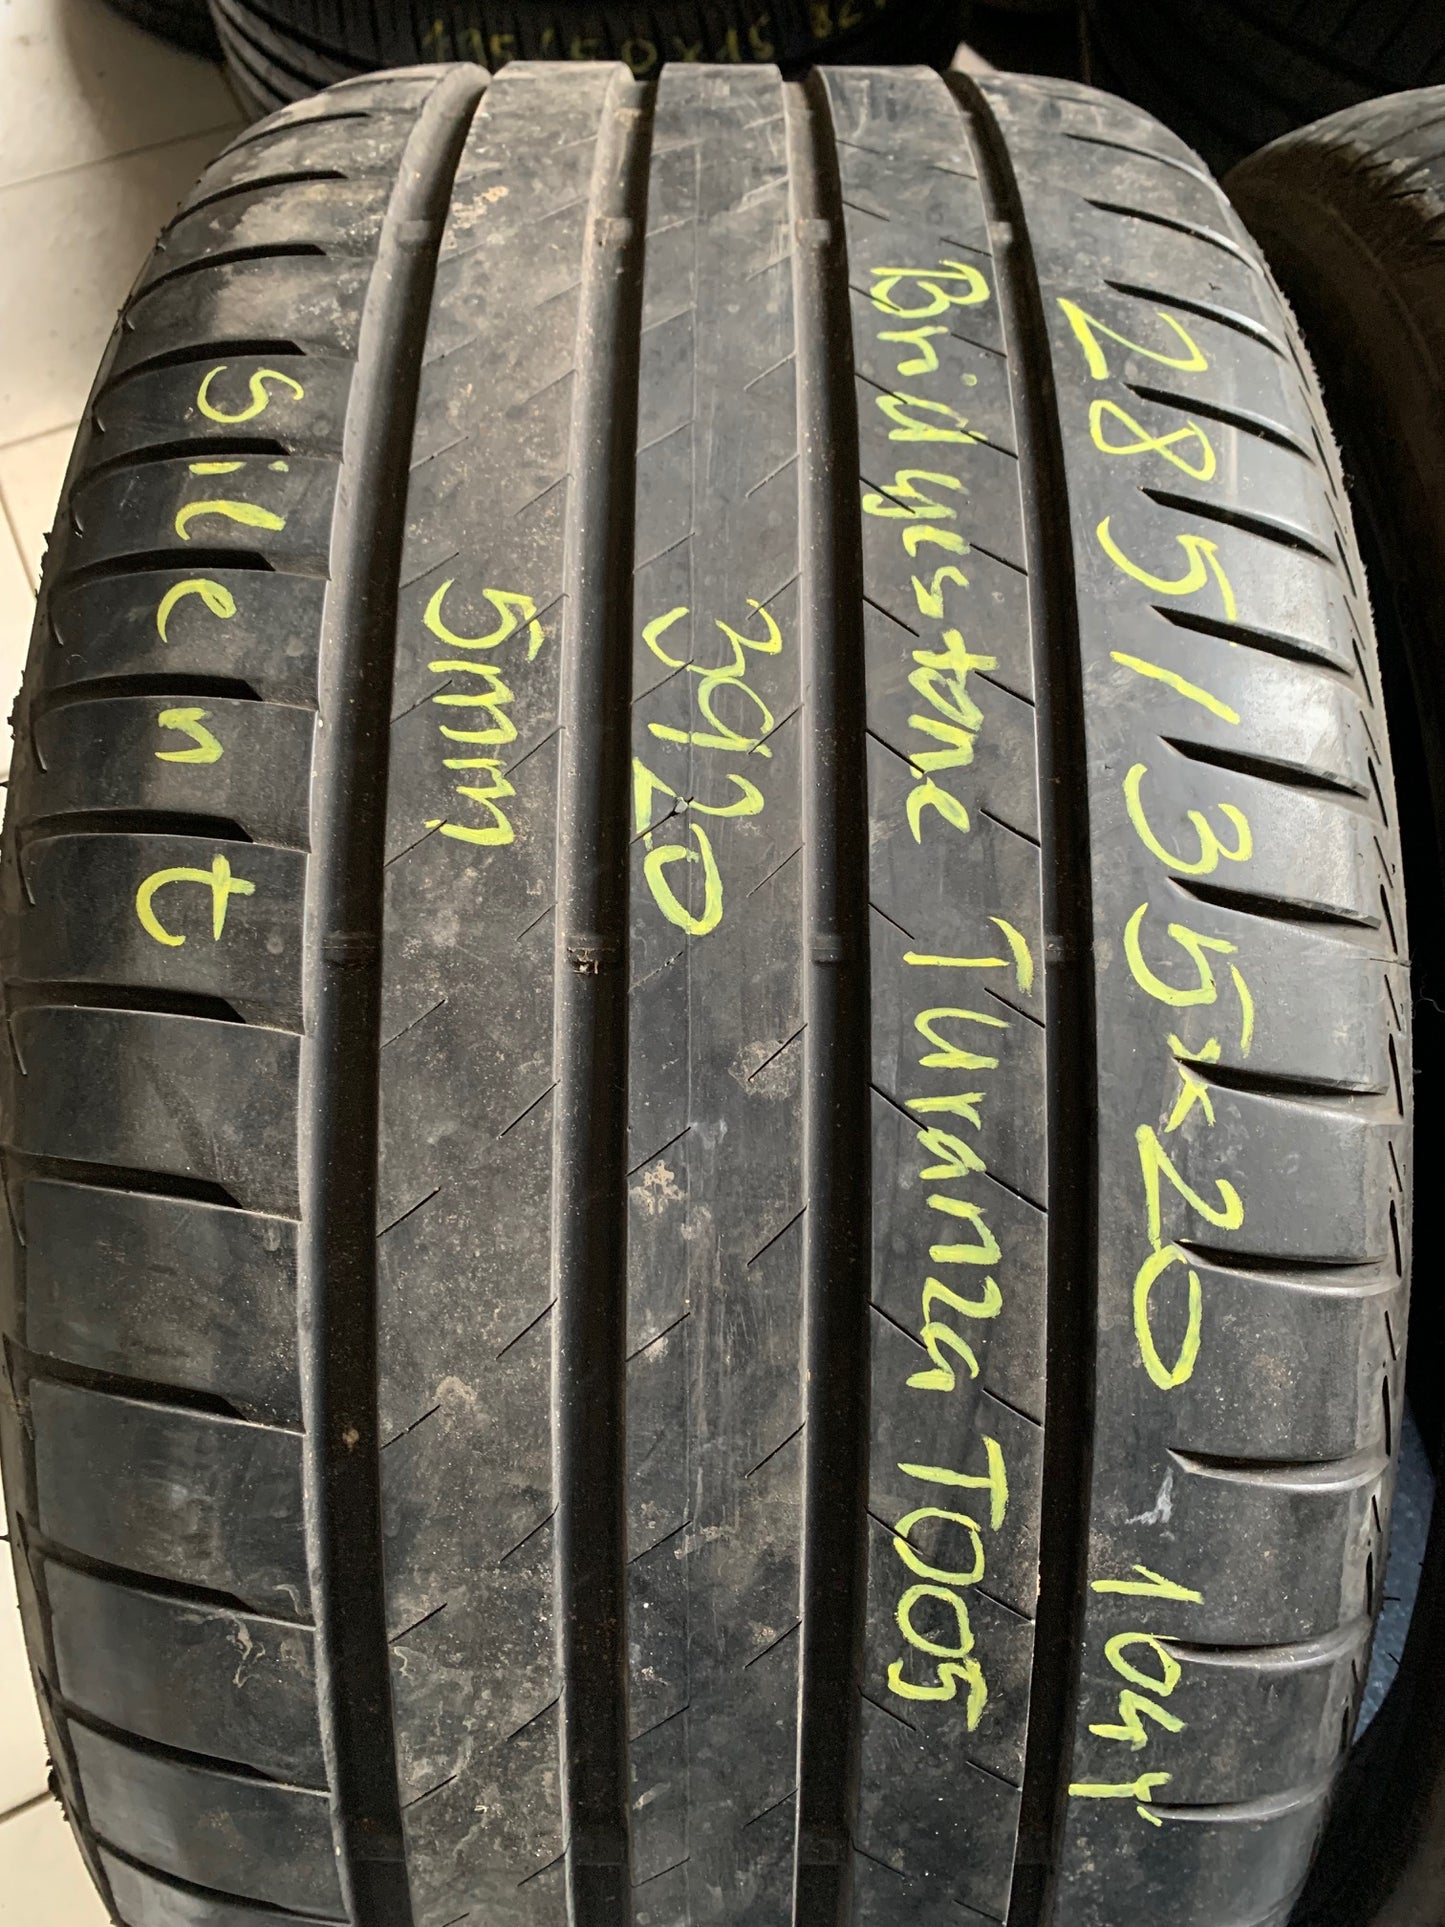 285/35x20 104Y
Bridgestone Turanza T005
3920
5mm
Silent